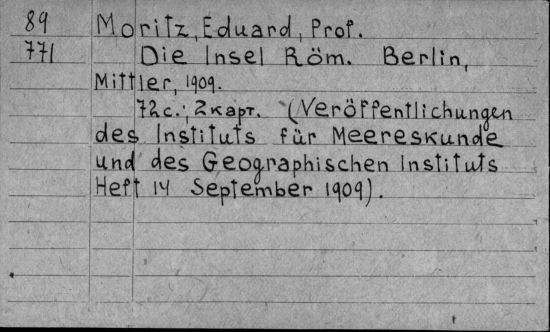 89 Moritz, Eduard, Prof.
771 Die Insel Röm. Berlin,
Mittler, 1909.
72 с.; 2 карт. (Veröffentlichungen
des Instituts für Meereskunde
und des Geographischen Instituts
Heft 14 September 1909).